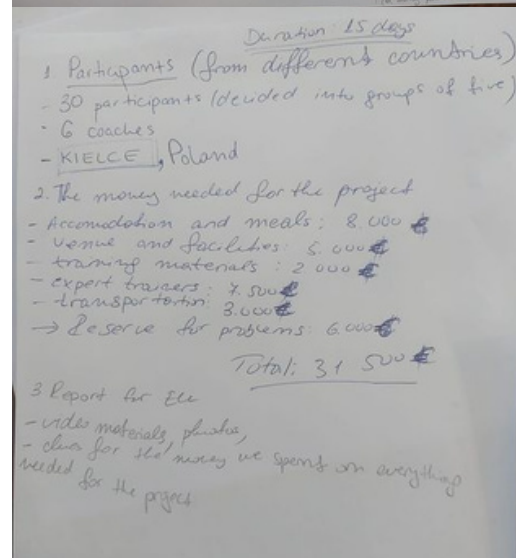 Duration: 15 days
1 Participants (from different countries)
- 30 participants (decided into groups of five)
- 6 coaches
- KIELCE, Poland
2. The money needed for the project
- Accomodation and meals: 8.000 €
- Venue and facilities: 5.000 €
- training materials: 2 000 €
- expert trainers: 7.500 €
- transportation: 3.000 €
→ Reserve for problems: 6.000 €
Total: 31 500 €
3 Report for EU
- video materials, photos,
- for the money we spent on everything
needed for the project